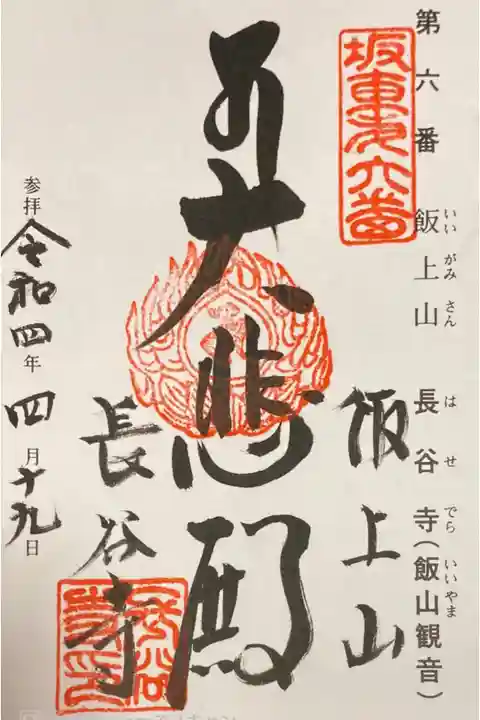 第六番 飯上山 長谷寺(飯山観音)
いいがみさん はせでら いいやま
坂東第六番
飯上山
大悲殿
長谷寺
参拝 令和四年四月十九日